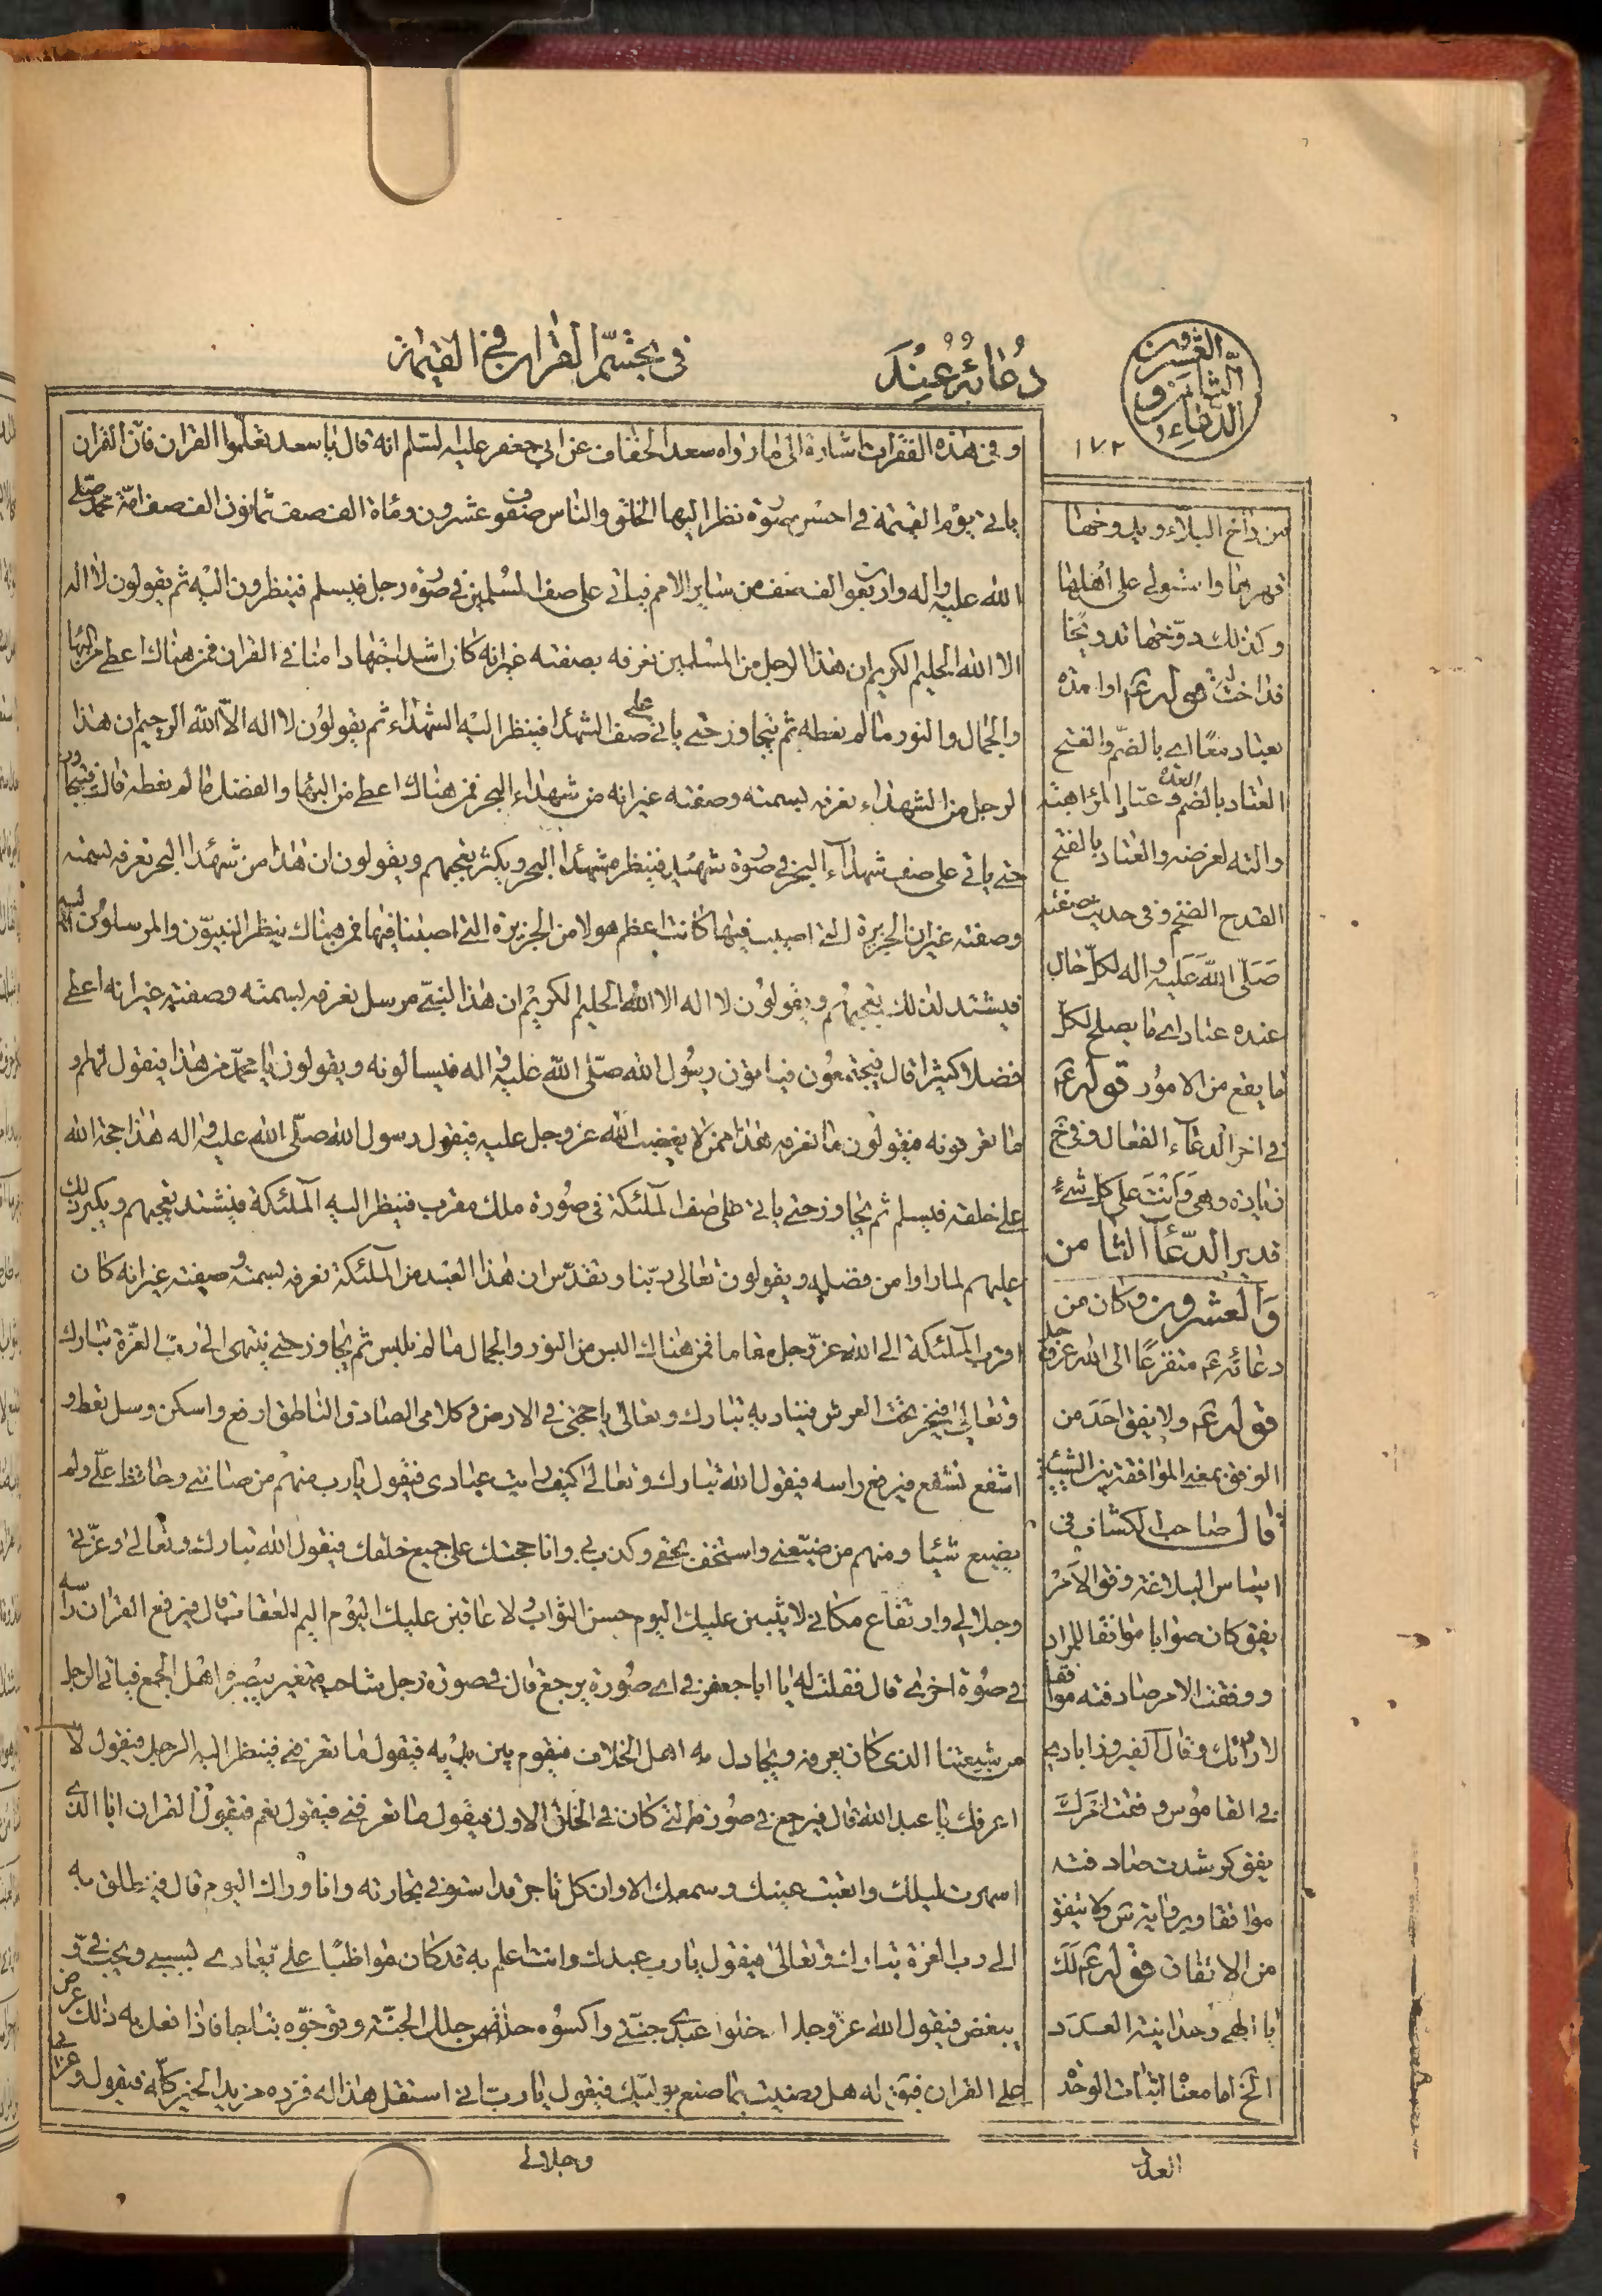 فى تجسّم القران فى القيمة
دُعائهُ عِنْدَ
الدّعاء الثامن و العشرون
١٧٢
و فى هذه الفقرات اشارة الى ما رواه سعد الخفاف عن ابي جعفر عليه السّلم انه قال يا سعد تعلّموا القران فانّ القران
ياتي يوم القيمة في احسن صورة نظر اليها الخلق والناس صفوف عشرون ومأة الف صف ثمانون الف صف امّة محمد صلى
الله عليه واله واربعون الف صف من ساير الامم فياتي على صف المسلمين في صورة رجل فيسلم فينظرون اليه ثم يقولون لا اله
الا الله الحليم الكريم ان هذا الرجل من المسلمين نعرفه بصفته غير انه كان اشد اجتهادا منا في القران فمن هناك اعطي من البهاء
والجمال والنور ما لم نعطه ثم يتجاوز حتى ياتي على صف الشهدا فينظر اليه الشهداء ثم يقولون لا اله الا الله الرحيم ان هذا
الرجل من الشهداء نعرفه بسمته وصفته غير انه من شهداء البحر فمن هناك اعطي من البهاء والفضل ما لم نعطه قال فيتجاوز
حتى ياتي على صف شهداء البحر في صورة شهيد فينظر شهدا البحر ويكثر تعجبهم ويقولون ان هذا من شهدا البحر نعرفه بسمته
وصفته غير ان الجزيرة التي اصيب فيها كانت اعظم هولا من الجزيرة التي اصبنا فيها فمن هناك ينظر النبيون والمرسلون اليه
فيشتد لذلك تعجبهم ويقولون لا اله الا الله الحليم الكريم ان هذا النبي مرسل نعرفه بسمته وصفته غير انه اعطي
فضلا كثيرا قال فيجتمعون فياتون رسول الله صلّى الله عليه واله فيسالونه ويقولون يا محمّد من هذا فيقول لهم او
ما تعرفونه فيقولون ما نعرفه هذا ممن لا يغضب الله عز وجل عليه فيقول رسول الله صلّى الله عليه واله هذا حجة الله
على خلقه فيسلم ثم يجاوز حتى ياتي على صف الملئكة في صورة ملك مقرب فينظر اليه الملئكة فيشتد تعجبهم ويكبر ذلك
عليهم لما راوا من فضله ويقولون تعالى ربّنا وتقدّس ان هذا العبد من الملئكة نعرفه بسمته وصفته غير انه كان
اقرب الملئكة الى الله عزّ وجل مقاما فمن هناك البس من النور والجمال ما لم نلبس ثم يجاوز حتى ينتهى الى ربّ العزّة تبارك
وتعالى فيخر تحت العرش فيناديه تبارك وتعالى يا حجتي في الارض و كلامى الصادق الناطق ارفع راسك وسل تعط و
اشفع تشفع فيرفع راسه فيقول الله تبارك وتعالى كيف رايت عبادى فيقول يا رب منهم من صانني وحافظ عليّ ولم
يضيع شيئا ومنهم من ضيّعني واستخف بحقي وكذب بي وانا حجتك على جميع خلقك فيقول الله تبارك وتعالى وعزّتي
وجلالي وارتفاع مكاني لاثيبن عليك اليوم حسن الثواب ولاعاقبن عليك اليوم اليم العقاب قال فيرفع القران راسه
في صورة اخرى قال فقلت له يا ابا جعفر في اى صورة يرجع قال في صورة رجل شاحب متغير يبصره اهل الجمع فياتي الرجل
من شيعتنا الذى كان يعرفه ويجادل به اهل الخلاف فيقوم بين يديه فيقول ما تعرفني فينظر اليه الرجل فيقول لا
اعرفك يا عبد الله قال فيرجع في صورته التي كان في الخلق الاول فيقول ما تعرفني فيقول نعم فيقول القران انا الذى
اسهرت ليلك وانعبت عينك وسمعك الا وان كل تاجر قد استوفى تجارته وانا وراك اليوم قال فينطلق به
الى رب العزة تبارك وتعالى فيقول يا رب عبدك وانت اعلم به قد كان مواظبا على يعادى بسببي ويحب فيّ و
يبغض فيقول الله عزّ وجل ادخلوا عبدى جنتي واكسوه حلة من حلل الجنّة وتوجّوه بتاج فاذا فعل به ذلك عرض
على القران فيقال له هل رضيت بما صنع بوليّك فيقول يا ربّ اني استقل هذا له فزده مزيد الخير كلّه فيقول وعزتي
وجلالي
من داخ البلاد ويدوخها
قهرها واستولى على اهلها
وكذلك دوّخها تدويخا
بعتاد معًا اى بالضّم والفتح
العتاد بالضم العدة وعتاد المرء اهبته
والته لغرضه والعتاد بالفتح
القدح الضخم وفى حديث صفته
صَلّى الله عَليه واله لكلّ حال
عنده عتاد اى ما يصلح لكلّ
ما يقع من الامور قوله ع
في اخر الدعاء الفعال وفي خ
زيادة وهى وَانْتَ عَلى كلّ شىء
قدير الدّعاء الثامن
وَالعشرون وكان من
دعائه ع متفزعًا الى الله عز وجل
قوله ع ولا يفق احَد من
الوفق بمعنى الموافقة بين الشيئين
قال صاحب الكشاف في
اساس البلاغة وفق الامر
يفق كان صوابا موافقا للمراد
ووفقت الامر صادفته موافقا
لارادتك وقال الفيروزابادى
في القاموس وفقت امْرَكَ
يفق كرشدت صادفته
موافقا وبرواية س ولا يتفق
من الاتفاق قوله ع لَكَ
يا الهى وحدانية العَدَد
الخ اما معناه اثبات الوحْد
العدد